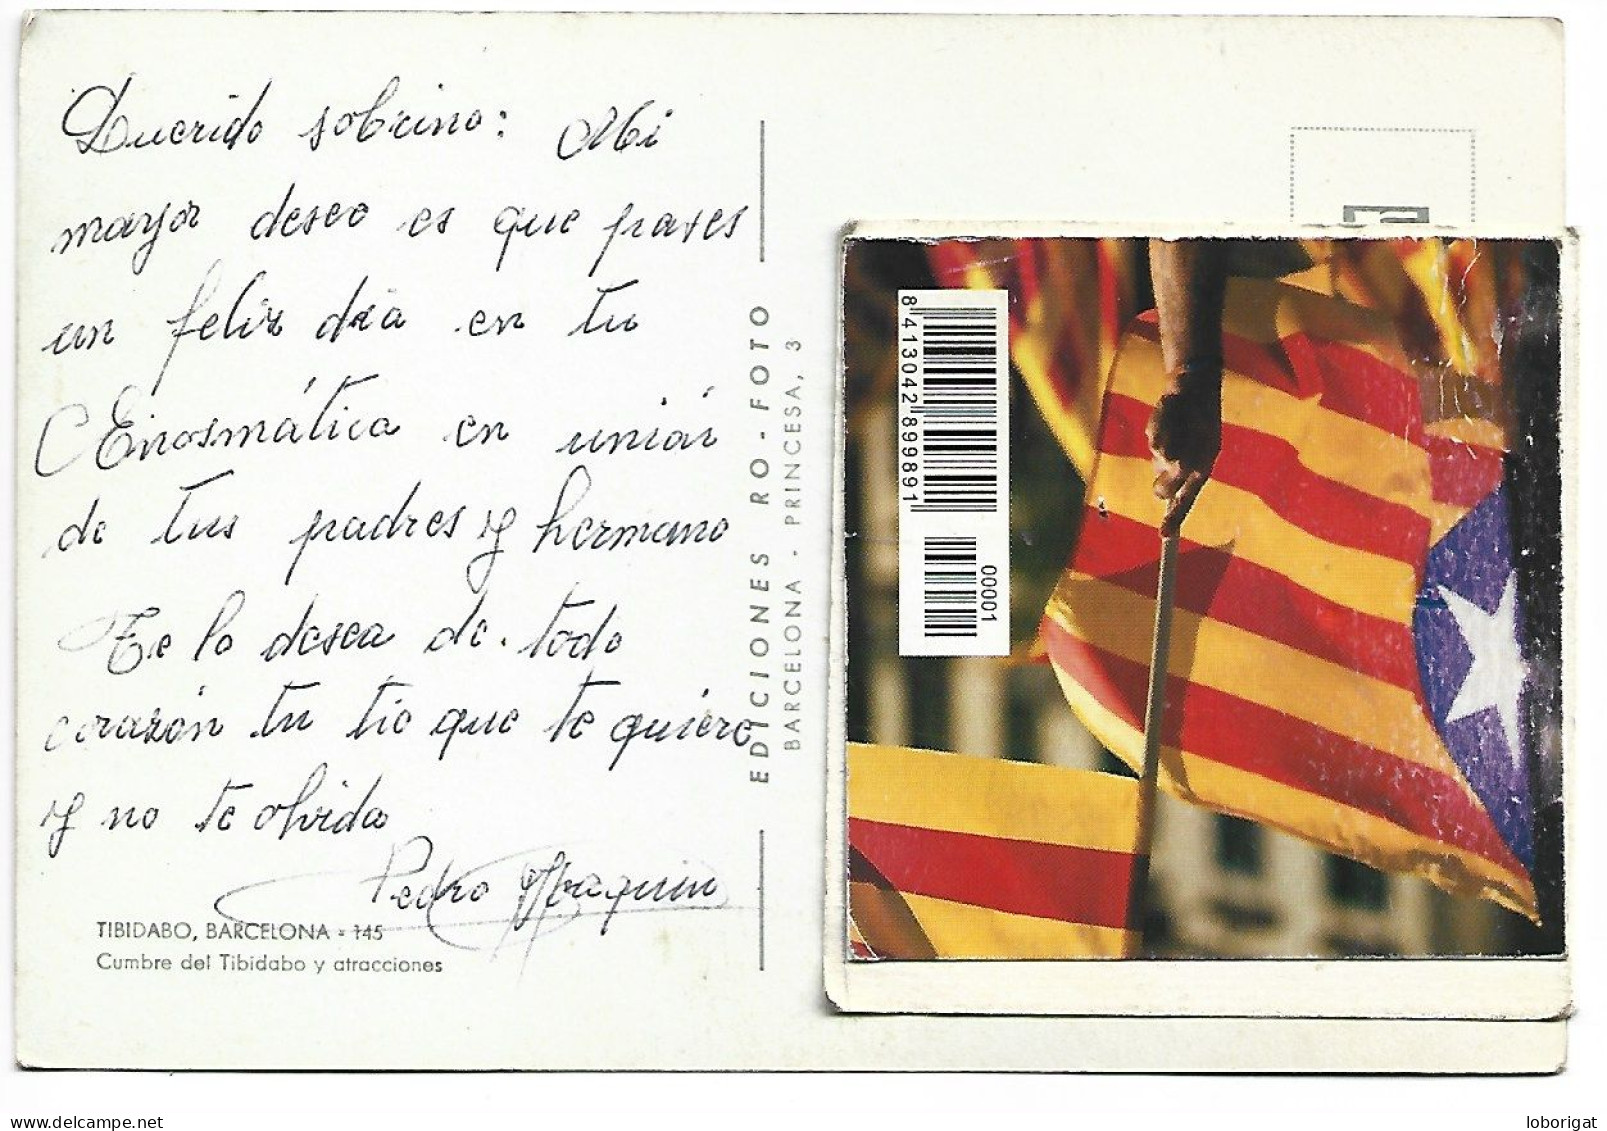 Querido sobrino: Mi
mayor deseo es que pases
un feliz día en tu
Onosmática en unión
de tus padres y hermano
Te lo desea de todo
corazón tu tio que te quiere
y no te olvida
Pedro Joaquin
TIBIDABO, BARCELONA - 145
Cumbre del Tibidabo y atracciones
EDICIONES RO-FOTO
BARCELONA - PRINCESA, 3
8 413042 899891
00001
loborigat